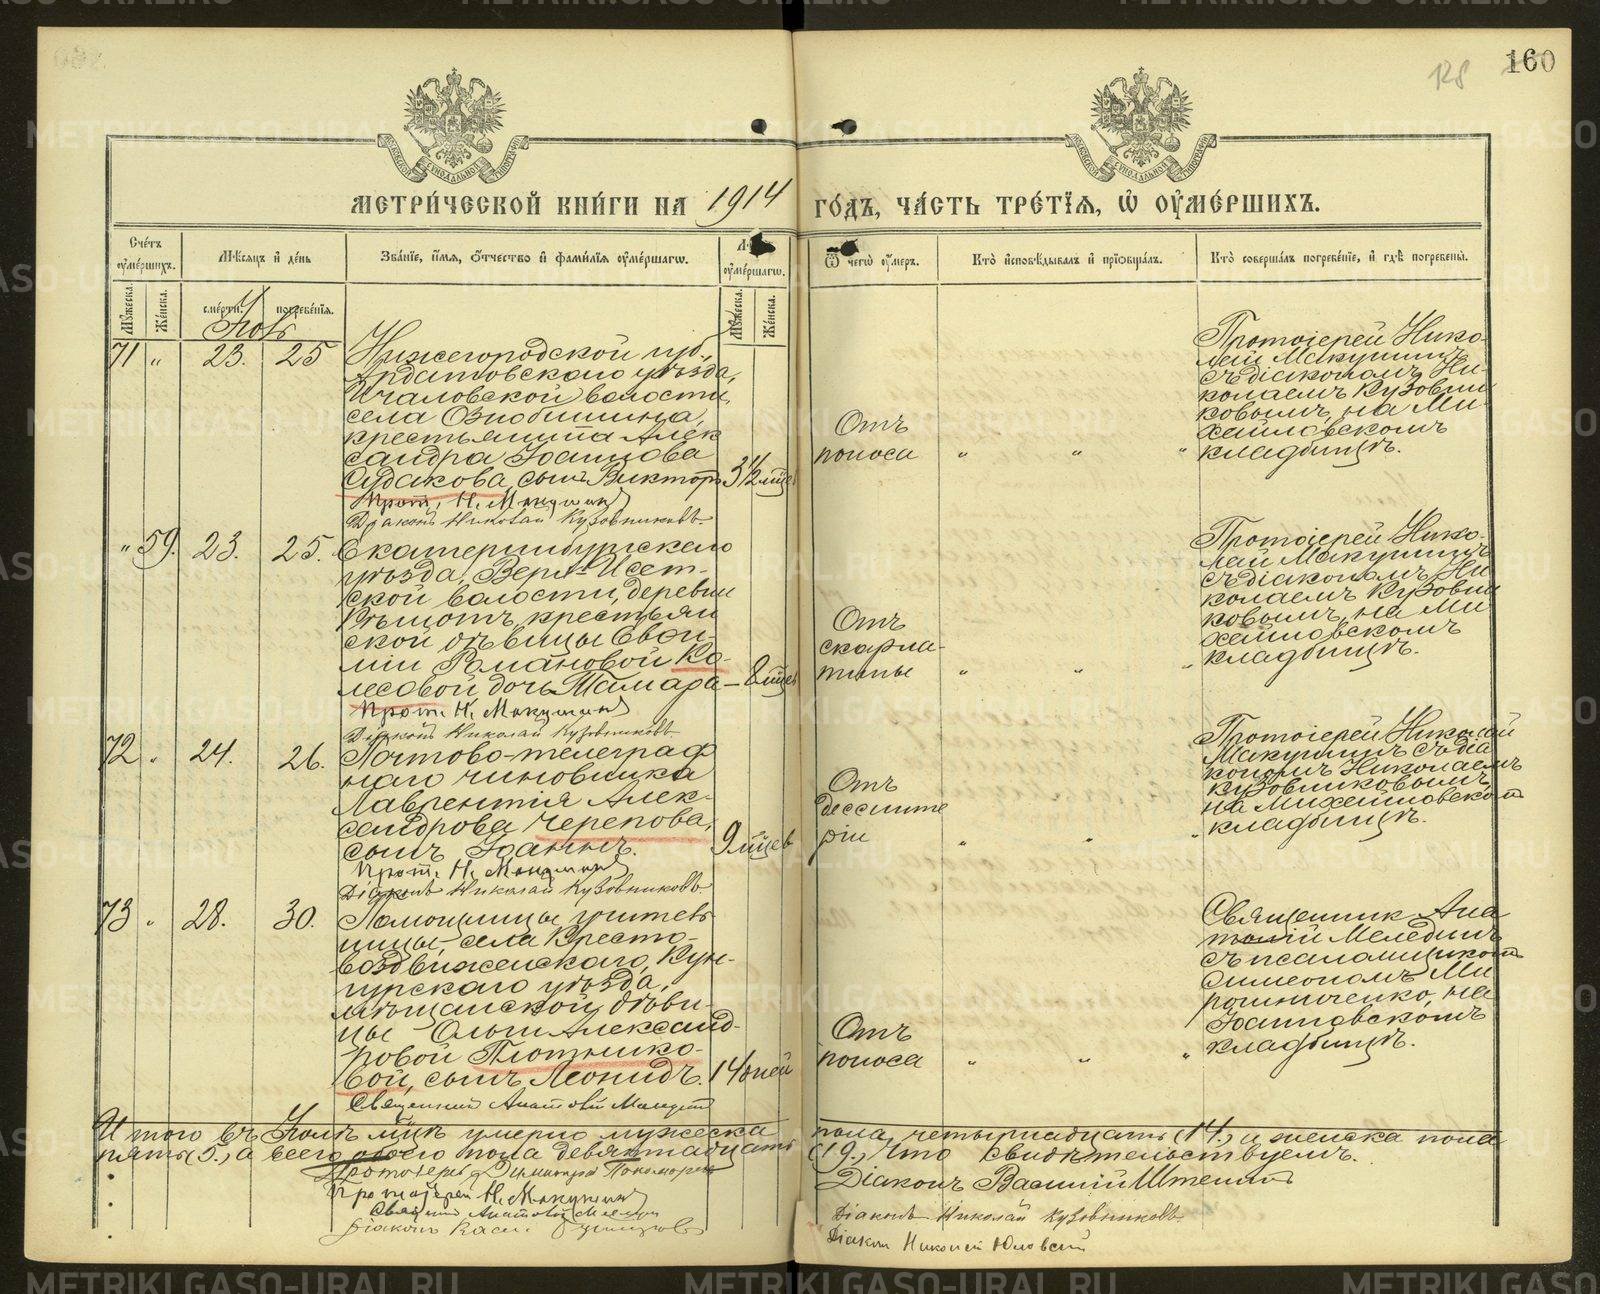 160
128
МЕТРИ́ЧЕСКОЙ КНИ́ГИ НА 1914 ГО́ДЪ, ЧА́СТЬ ТРЕ́ТЇѦ, Ѡ҆ ОУ҆МЕ́РШИХЪ.
Сче́тъ оумершихъ.
Мѣсяцъ и день
Зва́нїе, и҆́мя, о҆́тчество и҆ фами́лїя оу҆ме́ршагѡ.
оу҆ме́ршагѡ.
Ѿ чегѡ̀ оу҆́меръ.
Кто̀ и҆сповѣ́дывалъ и҆ прїѡбща́лъ.
Кто̀ соверша́лъ погребе́нїе, и҆ гдѣ̀ погребены̀.
Мꙋжеска.
Же́нска.
сме́рти.
погребе́нїя.
Мꙋжеска.
Же́нска.
71 " 23. 25
Нижегородской губ.,
Ардатовскаго уѣзда,
Ичаловской волости,
села Ознобишина,
крестьянина Алек
сандра Іоаннова
Судакова, сынъ Викторъ 3½ мцев
Прот. Н. Макушинъ
Діаконъ Николай Кузовниковъ
Отъ
поноса " " "
Протоіерей Нико-
лай Макушинъ
съ діакономъ Ни-
колаемъ Кузовни
ковымъ, на Ми-
хайловскомъ
кладбищѣ.
" 59. 23. 25.
Екатеринбургскаго
уѣзда, Верх-Исет-
ской волости, деревни
Рѣшотъ, крестьян
ской дѣвицы Евѳи-
міи Романовой Ко-
лесовой дочь Тамара – 8 мцев
Прот. Н. Макушинъ
Діаконъ Николай Кузовниковъ
Отъ
скарла-
тины " " "
Протоіерей Нико-
лай Макушинъ
съ діакономъ Ни-
колаемъ Кузовни
ковымъ, на Ми-
хайловскомъ
кладбищѣ.
72 " 24. 26.
Почтово-телеграф
наго чиновника
Лаврентія Алек-
сандрова Черепова,
сынъ Іоаннъ. 9 мцев
Прот. Н. Макушинъ
Діаконъ Николай Кузовниковъ
Отъ
дессинте
ріи " " "
Протоіерей Николай
Макушинъ съ діа
кономъ Николаемъ
Кузовниковымъ,
на Михайловском
кладбищѣ.
73 " 28. 30.
Помощницы учитель
ницы, села Кресто-
воздвиженскаго, Кун-
гурскаго уѣзда,
мѣщанской дѣви-
цы Ольги Александ-
ровой Плотнико-
вой, сынъ Леонидъ. 14 дней
Священник Анатолій
Отъ
поноса " " "
Священник Ана
толій
съ псаломщиком
Симеономъ Ми
рошниченко, на
Іоанновскомъ
кладбищѣ.
Итого въ Іюлѣ мцѣ умерло мужеска пола четырнадцать (14.) и женска пола
пять (5.), а всего обоего пола девятнадцать (19.), что свидѣтельствуемъ.
Протоіерей
Протоіерей Н. Макушинъ
Діаконъ Василій
Діаконъ Николай Кузовниковъ
METRIKI.GASO-URAL.RU